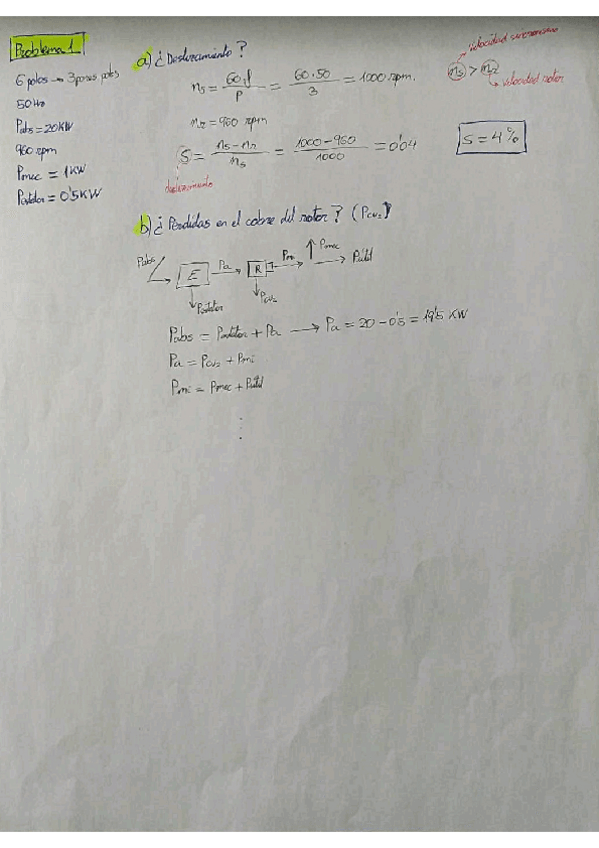 Problema 1
6 polos → 3 pares polos
50 Hz
Pabs = 20 KW
960 rpm
Pmec = 1 KW
Pestátor = 0'5 KW
a) ¿Deslizamiento?
velocidad sincronismo
ns > n2
velocidad rotor
ns = 60·f / P = 60·50 / 3 = 1000 rpm.
n2 = 960 rpm
S = ns - n2 / ns = 1000 - 960 / 1000 = 0'04
S = 4%
deslizamiento
b) ¿Pérdidas en el cobre del rotor? (Pcu2)
Pabs E Pa R Pmi Pmec Pútil
Pestátor Pcu2
Pabs = Pestátor + Pa → Pa = 20 - 0'5 = 19'5 KW
Pa = Pcu2 + Pmi
Pmi = Pmec + Pútil